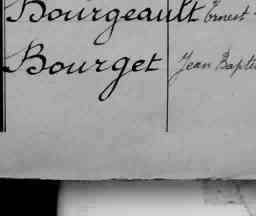 Bourgeault Ernest
Bourget Jean Bapti